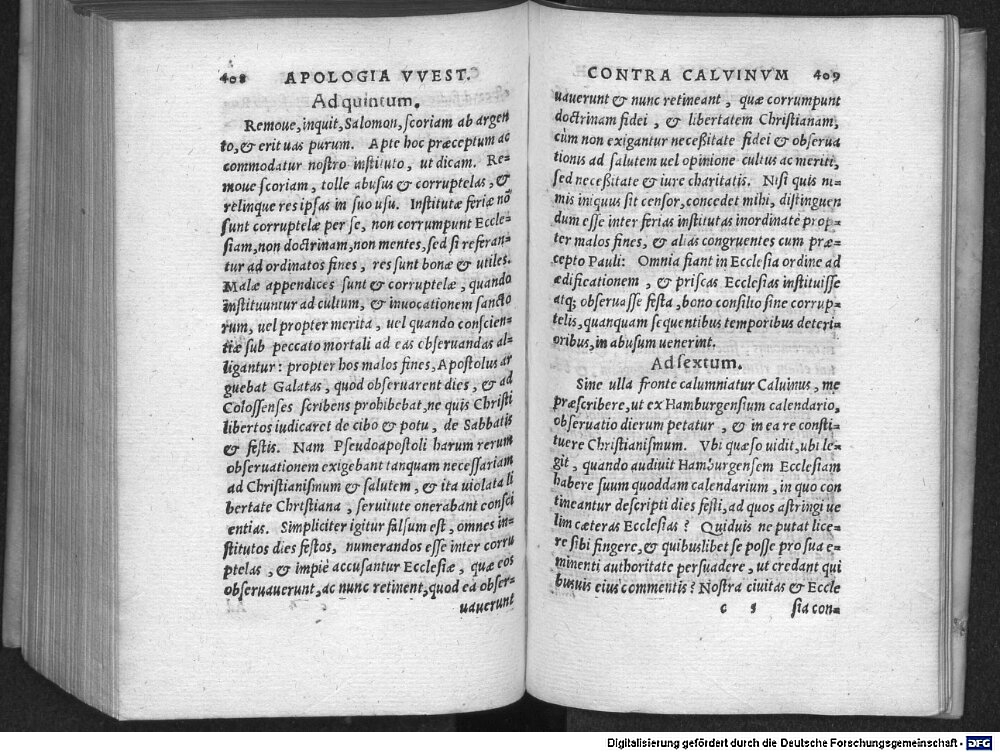 408 APOLOGIA VVEST.
Ad quintum.
Remoue, inquit, Salomon, scoriam ab argen
to, & erit uas purum. Apte hoc præceptum ac
commodatur nostro instituto, ut dicam. Re=
moue scoriam, tolle abusus & corruptelas, &
relinque res ipsas in suo usu. Institutæ feriæ nõ
sunt corruptelæ per se, non corrumpunt Eccle=
siam, non doctrinam, non mentes, sed si referan=
tur ad ordinatos fines, res sunt bonæ & utiles.
Malæ appendices sunt & corruptelæ, quando
instituuntur ad cultum, & inuocationem sancto
rum, uel propter merita, uel quando conscien=
tiæ sub peccato mortali ad eas obseruandas al=
ligantur: propter hos malos fines, Apostolus ar
guebat Galatas, quod obseruarent dies, & ad
Colossenses scribens prohibebat, ne quis Christi
libertos iudicaret de cibo & potu, de Sabbatis
& festis. Nam Pseudoapostoli harum rerum
obseruationem exigebant tanquam necessariam
ad Christianismum & salutem, & ita uiolata li
bertate Christiana, seruitute onerabant consci
entias. Simpliciter igitur falsum est, omnes in=
stitutos dies festos, numerandos esse inter corru
ptelas, & impiè accusantur Ecclesiæ, quæ eos
obseruauerunt, ac nunc retinent, quod ea obser=
uauerunt
CONTRA CALVINVM 409
uauerunt & nunc retineant, quæ corrumpunt
doctrinam fidei, & libertatem Christianam,
cùm non exigantur neceßitate fidei & obserua
tionis ad salutem uel opinione cultus ac meriti,
sed neceßitate & iure charitatis. Nisi quis ni=
mis iniquus sit censor, concedet mihi, distinguen
dum esse inter ferias institutas inordinatè prop=
ter malos fines, & alias congruentes cum præ=
cepto Pauli: Omnia fiant in Ecclesia ordine ad
ædificationem, & priscas Ecclesias instituisse
atq; obseruasse festa, bono consilio sine corrup=
telis, quanquam sequentibus temporibus deteri=
oribus, in abusum uenerint.
Ad sextum.
Sine ulla fronte calumniatur Caluinus, me
præscribere, ut ex Hamburgensium calendario,
obseruatio dierum petatur, & in ea re consti=
tuere Christianismum. Vbi quæso uidit, ubi le=
git, quando audiuit Hamburgensem Ecclesiam
habere suum quoddam calendarium, in quo con
tineantur descripti dies festi, ad quos astringi ue
lim cæteras Ecclesias? Quiduis ne putat lice=
re sibi fingere, & quibuslibet se posse pro sua e=
minenti authoritate persuadere, ut credant qui
busuis eius commentis? Nostra ciuitas & Eccle
c 5 sia con=
Digitalisierung gefördert durch die Deutsche Forschungsgemeinschaft - DFG